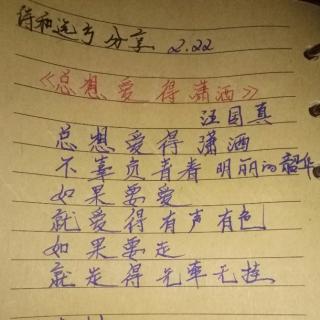 分享 2.22
《总想爱得潇洒》
汪国真
总想爱得潇洒
不辜负青春明丽的韶华
如果要爱
就爱得有声有色
如果要走
就走得无牵无挂